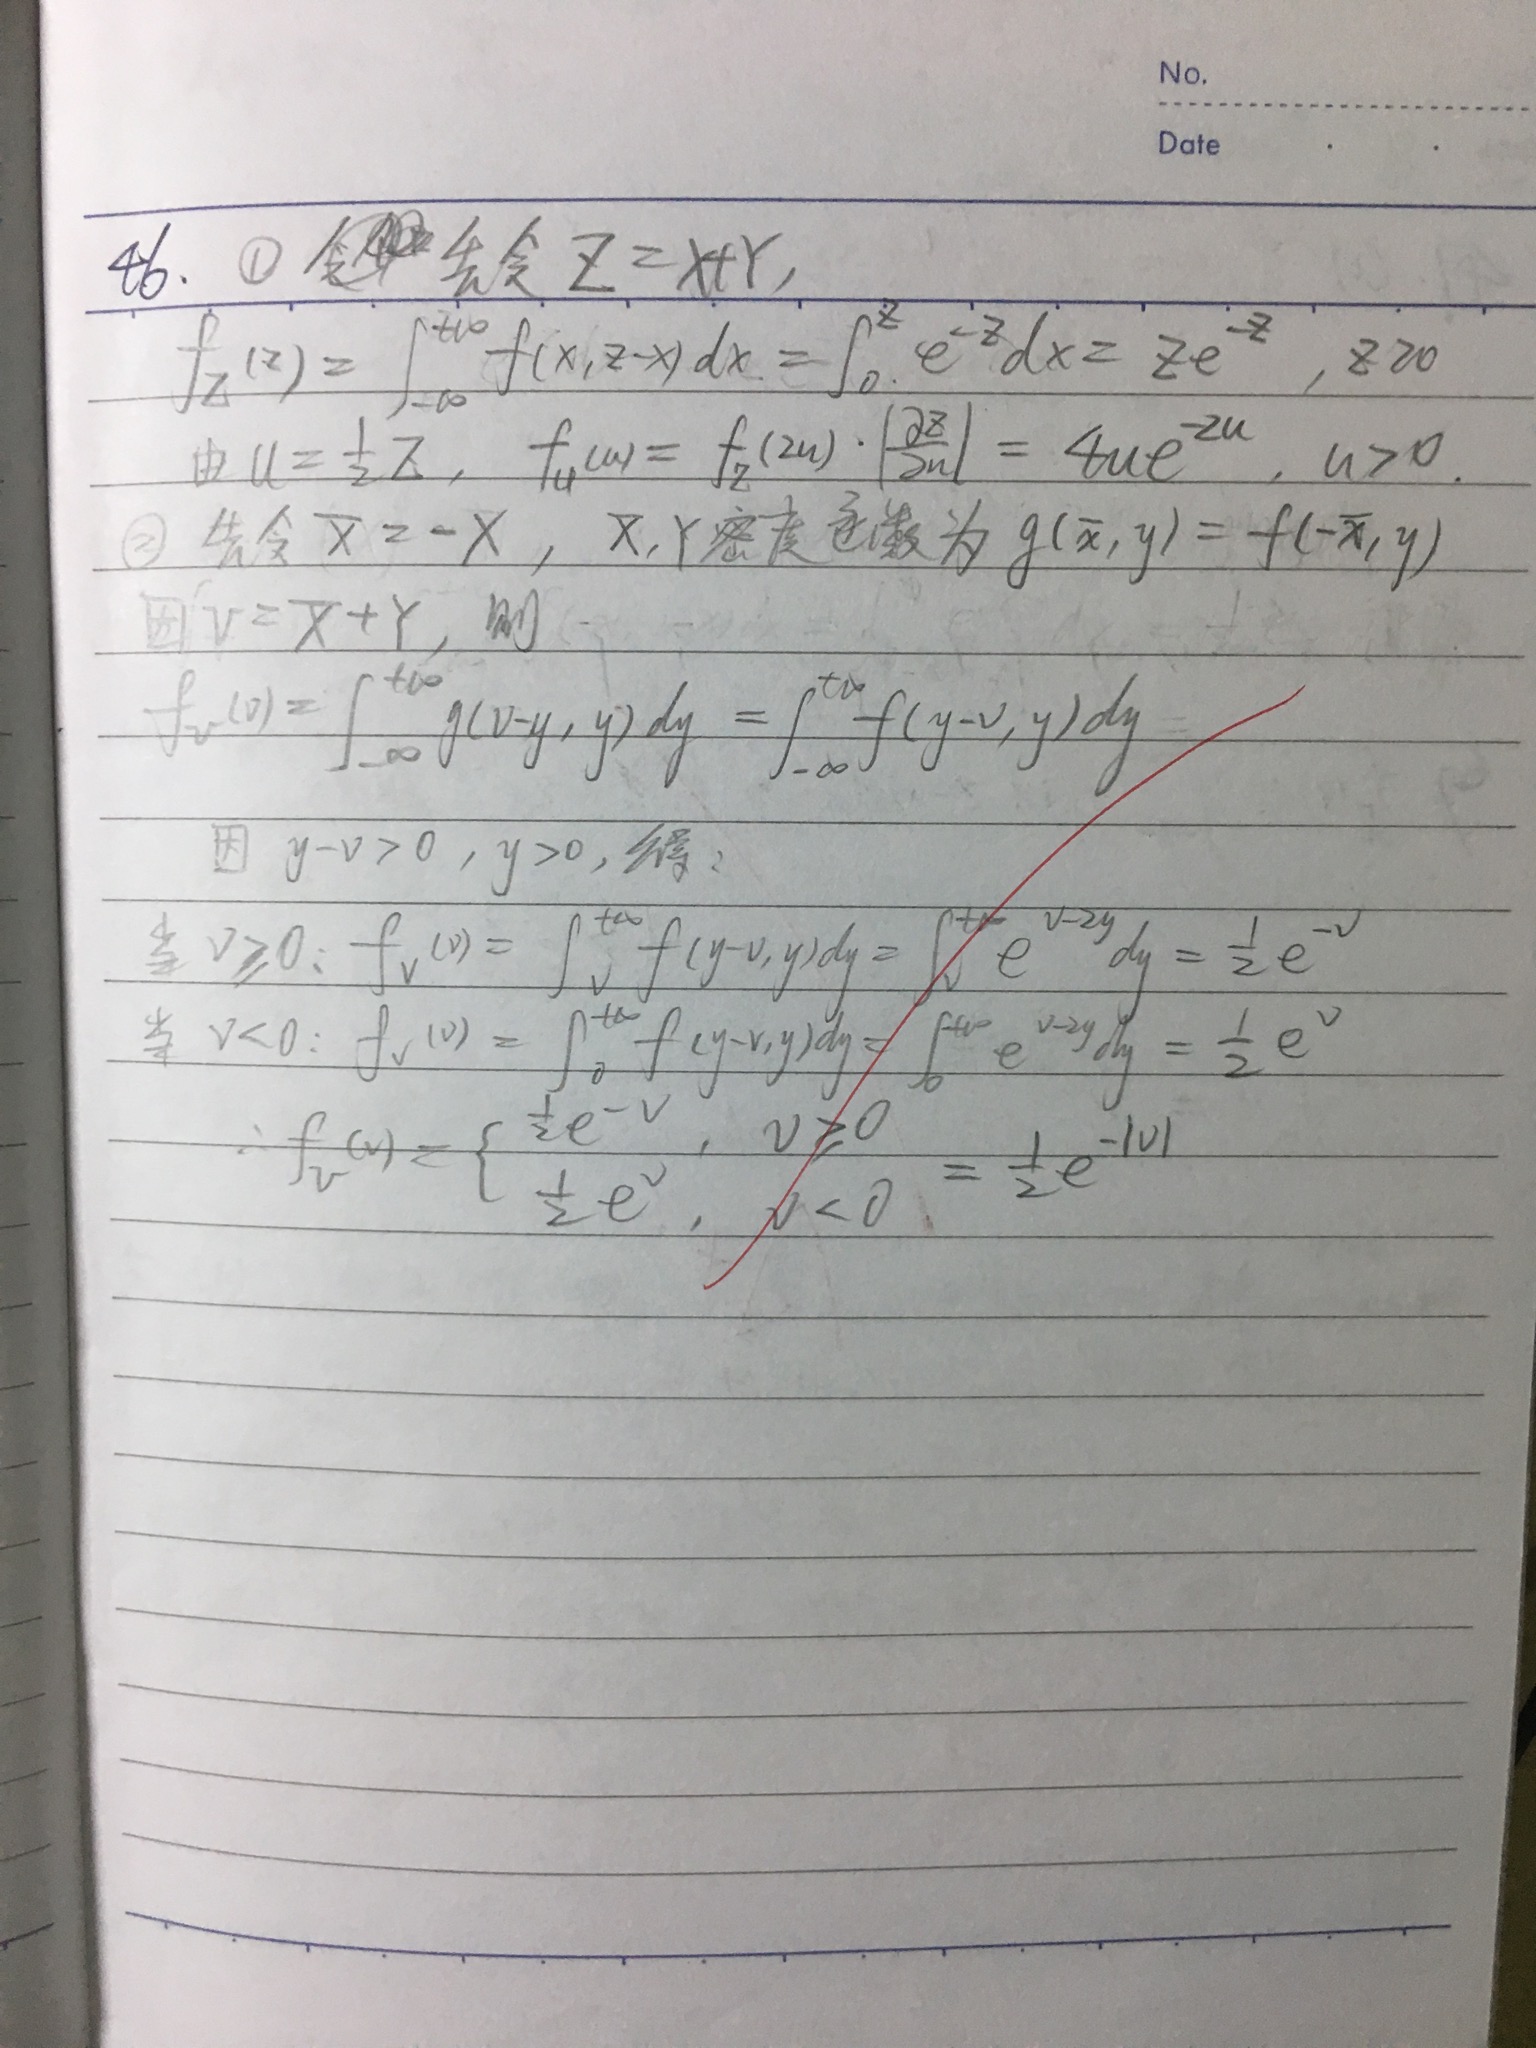 No.
Date
46. ① 先令 Z = X+Y,
f_Z(z) = ∫_{-∞}^{+∞} f(x, z-x) dx = ∫_0^z e^{-z} dx = ze^{-z}, z>0
由 U = ½Z, f_U(u) = f_Z(2u)·|∂z/∂u| = 4ue^{-2u}, u>0.
② 先令 X̄ = -X, X̄, Y密度函数为 g(x̄, y) = f(-x̄, y)
因 V = X̄+Y, 则
f_V(v) = ∫_{-∞}^{+∞} g(v-y, y) dy = ∫_{-∞}^{+∞} f(y-v, y) dy
因 y-v>0, y>0, 得:
当 v≥0: f_V(v) = ∫_v^{+∞} f(y-v, y) dy = ∫_v^{+∞} e^{v-2y} dy = ½ e^{-v}
当 v<0: f_V(v) = ∫_0^{+∞} f(y-v, y) dy = ∫_0^{+∞} e^{v-2y} dy = ½ e^v
∴ f_V(v) = { ½e^{-v}, v≥0
½e^v, v<0 = ½e^{-|v|}